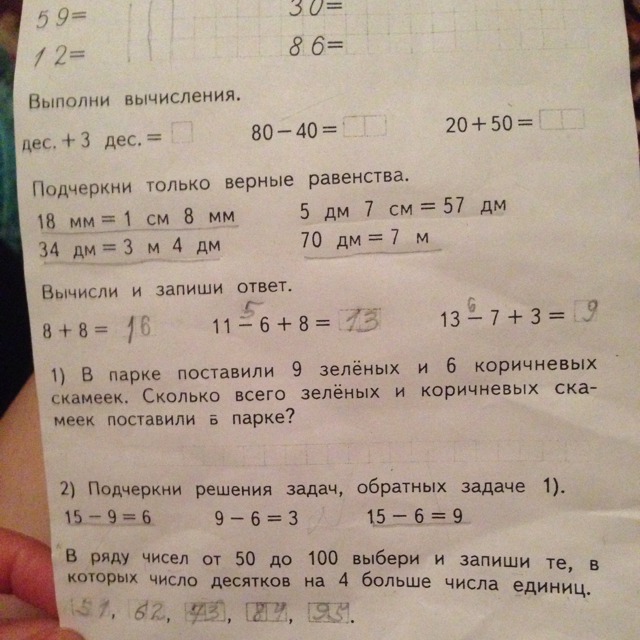 59=    30=
12=    86=
Выполни вычисления.
дес. + 3 дес. =    80 − 40 =    20 + 50 =
Подчеркни только верные равенства.
18 мм = 1 см 8 мм    5 дм 7 см = 57 дм
34 дм = 3 м 4 дм    70 дм = 7 м
Вычисли и запиши ответ.
5    6
8 + 8 = 16    11 − 6 + 8 = 13    13 − 7 + 3 = 9
1) В парке поставили 9 зелёных и 6 коричневых
скамеек. Сколько всего зелёных и коричневых ска-
меек поставили в парке?
2) Подчеркни решения задач, обратных задаче 1).
15 − 9 = 6    9 − 6 = 3    15 − 6 = 9
В ряду чисел от 50 до 100 выбери и запиши те, в
которых число десятков на 4 больше числа единиц.
51, 62, 73, 84, 95.